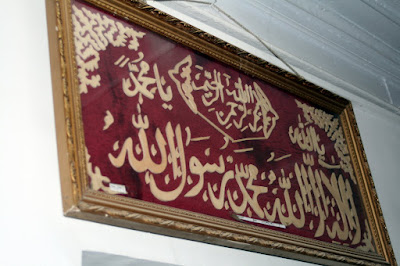 بسم الله الرحمن الرحيم
يا الله
يا محمد
لا إله إلا الله محمد رسول الله